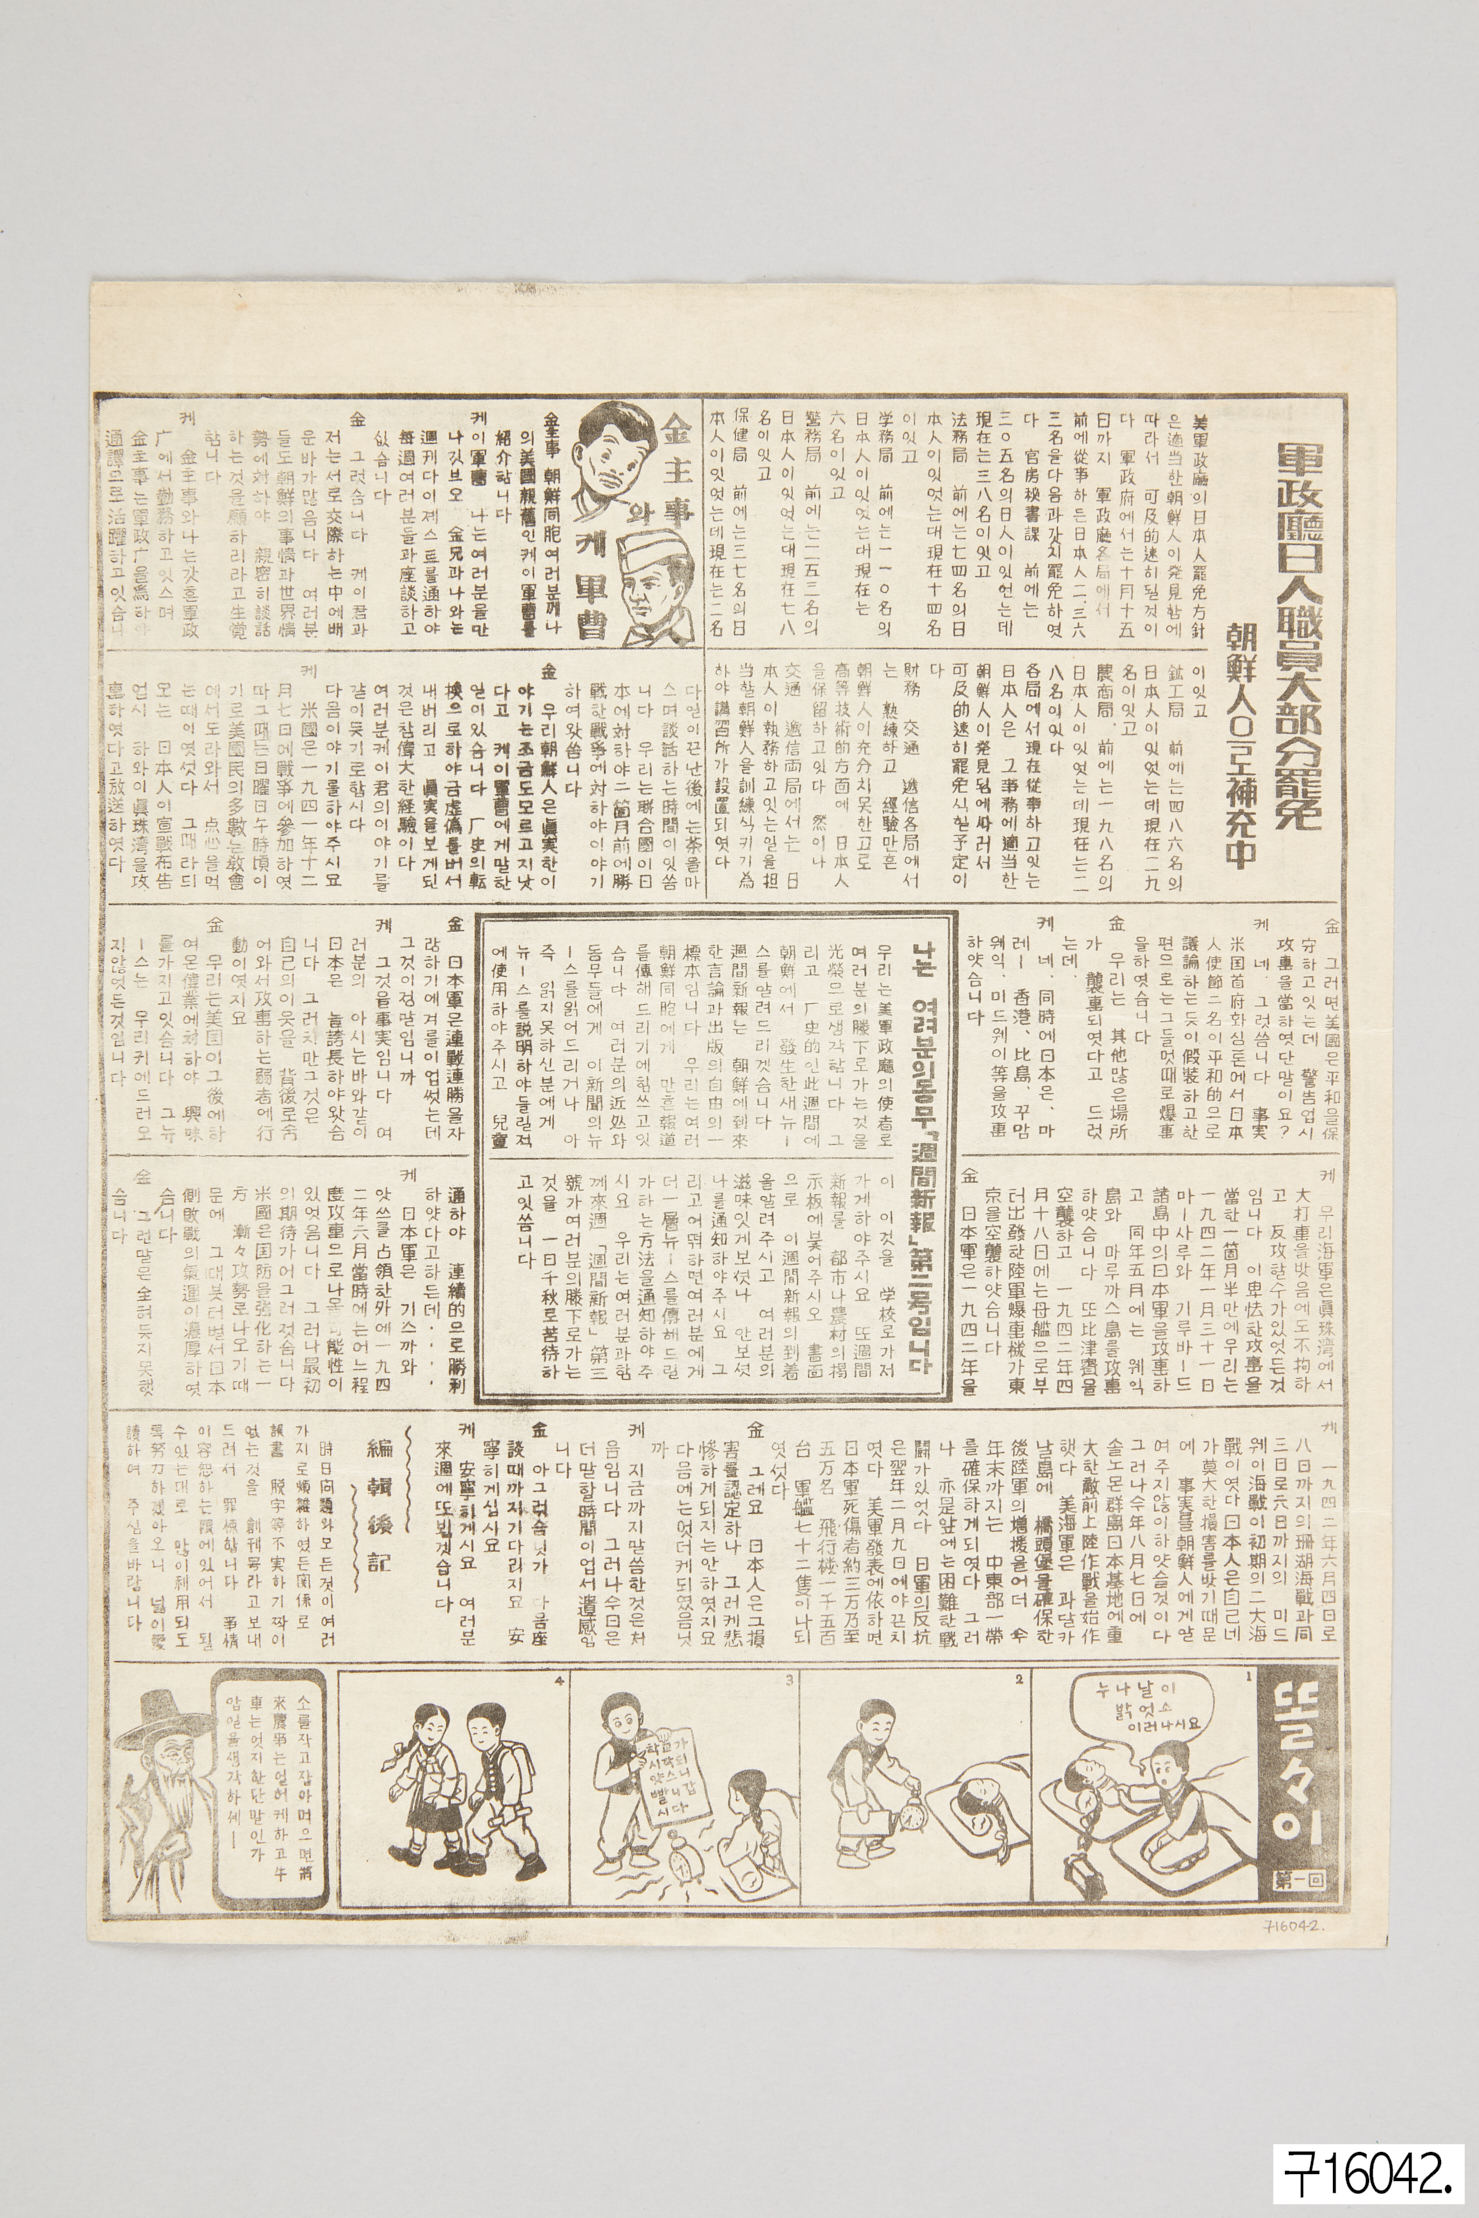 軍政廳日人職員大部分罷免
朝鮮人으로補充中
美軍政廳의日本人罷免方針
은適当한朝鮮人이発見함에
따라서 可及的速히될것이
다 軍政府에서는十月十五
日까지 軍政廳各局에서
前에從事하든日本人二、三六
三名을다음과갓치罷免하엿
다 官房秘書課 前에는
三〇五名의日人이잇언는데
現在는三八名이잇고
法務局 前에는七四名의日
本人이잇엇는대現在十四名
이잇고
学務局 前에는一一〇名의
日本人이잇엇는대現在는
六名이잇고
警務局 前에는二五三名의
日本人이잇엇는대現在七八
名이잇고
保健局 前에는三七名의日
本人이잇엇는데現在는二名
이잇고
鉱工局 前에는四八六名의
日本人이잇엇는데現在二九
名이잇고
農商局、前에는一九八名의
日本人이잇엇는데現在는二
八名이잇다
各局에서現在從事하고잇는
日本人은 그事務에適当한
朝鮮人이発見됨에싸러서
可及的速히罷免식힐予定이
다
財務 交通 遞信各局에서
는 熟練하고 經驗만흔
朝鮮人이充分치못한고로
高等技術的方面에 日本人
을保留하고잇다 然이나
交通 遞信両局에서는 日
本人이執務하고잇는일을担
当할朝鮮人을訓練식키기為
하야講習所가設置되엿다
金主事
와
케軍曹
金主事 朝鮮同胞여러분께나
의美國親舊인케이軍曹를
紹介합니다
케이軍曹 나는여러분을만
나깃브오 金兄과나와는
週刊다이제스트를通하야
每週여러분들과座談하고
싶습니다
金 그럿습니다 케이君과
저는서로交際하는中에배
운바가많음니다 여러분
들도朝鮮의事情과世界情
勢에対하야 親密히談話
하는것을願하리라고生覚
합니다
케 金主事와나는갓흔軍政
广에서勤務하고잇스며
金主事는軍政广을為하야
通譯으로活躍하고잇습니
다일이끈난後에는茶을마
스며談話하는時間이잇씀
니다 우리는聯合國이日
本에対하야二箇月前에勝
戦한戰爭에対하야이야기
하여왓씀니다
金 우리朝鮮人은眞実한이
야기는조금도모르고지낫
다고 케이軍曹에게말한
일이있습니다 厂史의転
換으로하야금虛僞를버서
내버리고 眞実을보게된
것은참偉大한経驗이다
여러분케이君의이야기를
같이듯기로합시다
다음이야기를하야주시요
케 米國은一九四一年十二
月七日에戰爭에參加하엿
따그때는日曜日午時頃이
기로美國民의多數는敎會
에서도라와서 点心을먹
는때이엿섯다 그때라듸
오는 日本人이宣戦布告
업시 하와이眞珠湾을攻
擊하엿다고放送하엿다
金 그러면美國은平和을保
守하고잇는데 警告업시
攻擊을當하엿단말이요?
케 네、그럿씀니다 事実
米国首府와싱톤에서日本
人使節二名이平和的으로
議論하는듯이假裝하고한
편으로는그들멋때로爆擊
을하엿습니다
金 우리는 其他많은場所
가 襲擊되엿다고 드럿
는데、
케 네、同時에日本은、마
레ー 香港、比島、꾸암
웨익、미드웨이等을攻擊
하얏습니다
케 우리海軍은眞珠湾에서
大打擊을밧음에도不拘하
고 反攻할수가있엇든것
임니다 이卑怯한攻擊을
當한一箇月半만에우리는
一九四二年一月三十一日
마ー사루와 기루바ー드
諸島中의日本軍을攻擊하
고 同年五月에는 웨익
島와 마루까스島를攻擊
하얏습니다 또比津賓을
空襲하고 一九四二年四
月十八日에는母艦으로부
터出發한陸軍爆擊機가東
京을空襲하얏습니다
金 日本軍은一九四二年을
나는 여러분의동무「週間新報」第二号입니다
우리는美軍政廳의使者로
여러분의膝下로가는것을
光榮으로생각합니다 그
리고 厂史的인此週間에
朝鮮에서 發生한새뉴ー
스를알려드리겟슴니다
週間新報는 朝鮮에到來
한言論과出版의自由의一
標本입니다 우리는여러
朝鮮同胞에게 만흔報道
를傳해드리기에힘쓰고잇
슴니다 여러분의近処와
동무들에게 이新聞의뉴
ー스를읽어드리거나 아
즉 읽지못하신분에게
뉴ー스를説明하야들릴적
에使用하야주시고 兒童
이 이것을 学校로가저
가게하야주시요 또週間
新報를 都市나農村의揭
示板에붗어주시오 書面
으로 이週間新報의到着
을알려주시고 여러분의
滋味잇게보섯나 안보섯
나를通知하야주시요 그
리고어떡하면여러분에게
더一層뉴ー스를傳해드릴
가하는方法을通知하야주
시요 우리는여러분과함
께來週「週間新報」第三
號가여러분의膝下로가는
것을 一日千秋로苦待하
고잇씀니다
金 日本軍은連戰連勝을자
랑하기에겨를이업썻는데
그것이정말임니까
케 그것음事実임니다 여
러분의 아시는바와같이
日本은 늘誇長하야왓슴
니다 그러치만그것은
自己의이웃을 背後로숨
어와서攻擊하는弱者에行
動이엿지요
金 우리는美国이그後에하
여온偉業에対하야 興味
를가지고잇슴니다 그뉴
ー스는 우리귀에드러오
지않엇든것임니다
通하야 連續的으로勝利
하얏다고하든데・・・・
케 日本軍은 기스까와
앗쓰를占領한外에一九四
二年六月當時에는어느程
度攻擊으로나올可能性이
있엇음니다 그러나最初
의期待가어그러젓슴니다
米國은国防을強化하는一
方 漸々攻勢로나오기때
문에 그대붓터벌서日本
側敗戰의氣運이濃厚하엿
슴니다
金 그런말은全혀듯지못했
습니다
케 一九四二年六月四日로
八日까지의珊湖海戰과同
三日로六日까지의 미드
웨이海戰이初期의二大海
戰이엿다日本人은自己네
가莫大한損害를밧기때문
에 事実를朝鮮人에게알
여주지않이하얏슬것이다
그러나今年八月七日에
솔노몬群島日本基地에重
大한敵前上陸作戰을始作
햇다 美海軍은 과달카
날島에 橋頭堡을確保한
後陸軍의増援을어더 今
年末까지는 中東部一帶
를確保하게되엿다 그러
나 亦是앞에는困難한戰
鬪가있엇다 日軍의反抗
은翌年二月九日에야끈치
엿다 美軍發表에依하면
日本軍死傷者約三万乃至
五万名 飛行機一千五百
台 軍艦七十二隻이나되
엿섯다
金 그레요 日本人은그損
害를認定하나 그러케悲
慘하게되지는안하엿지요
다음에는엇더케되였음닛
까
케 지금까지말씀한것은처
음임니다 그러나今日은
더말할時間이업서遺感임
니다
金 아그러슴닛가 다음座
談때까지기다리지요 安
寧히게십시요
케 安寧히게시요 여러분
來週에또뵙겟습니다
編輯後記
時日问題와모든것이여러
가지로煩雑하엿든関係로
誤書 脱字等不実하기짝이
없는것을 創刊号라고보내
드려서 罪悚합니다 事情
이容恕하는限에있어서 될
수있는대로 많이利用되도
록努力하겠아오니 널이愛
讀하여 주심을바랍니다
똘々이
第一回
1
누나날이
밝엇소
이러나시요
2
3
학교가
시작되
얏스니
빨니갑
시다
4
소를작고잡아머으면將
來農事는엇어케하고牛
車는엇지한단말인가
앞일을생각하쎄ー
구16042.
구16042.